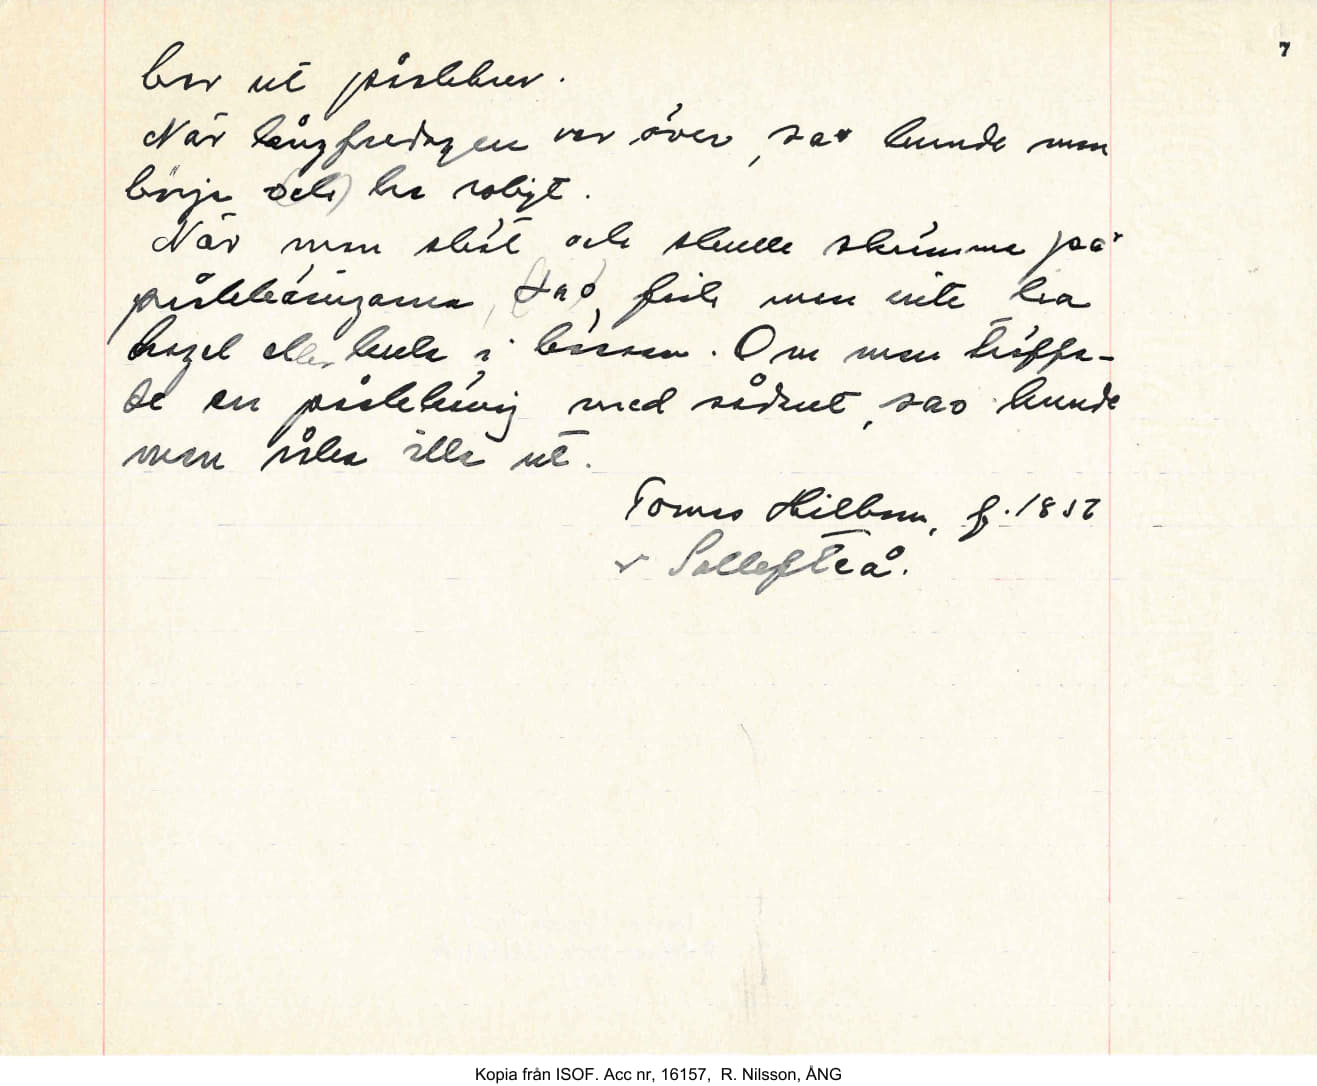 7
bar ut påskbrev.
När långfredagen var över, sao kunde man
börja (och) ha roligt.
När man sköt och skulle skrämma på
påskkäringarna, (sao) fick man inte ha
hagel eller kula i bössan. Om man träffa-
de en påskkäring med sådant, sao kunde
man råka illa ut.
Tomas Hillbom, f. 1857
v Sollefteå.
Kopia från ISOF. Acc nr, 16157, R. Nilsson, ÅNG